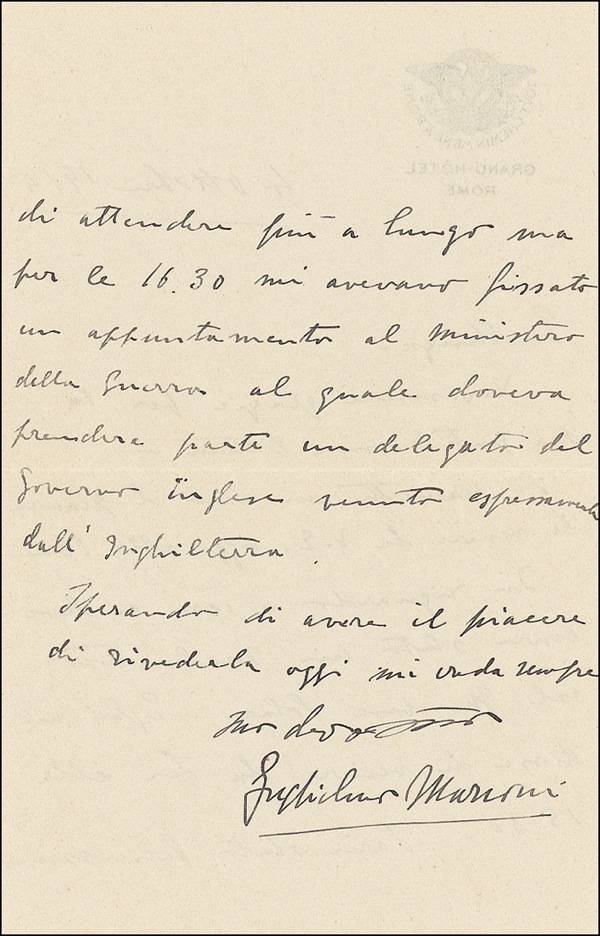 di attendere più a lungo ma
per le 16.30 mi avevano fissato
un appuntamento al Ministero
della Guerra al quale doveva
prendere parte un delegato del
Governo inglese venuto espressamente
dall' Inghilterra.
Sperando di avere il piacere
di rivederla oggi mi creda sempre
suo
Guglielmo Marconi
GRAND-HÔTEL
ROME